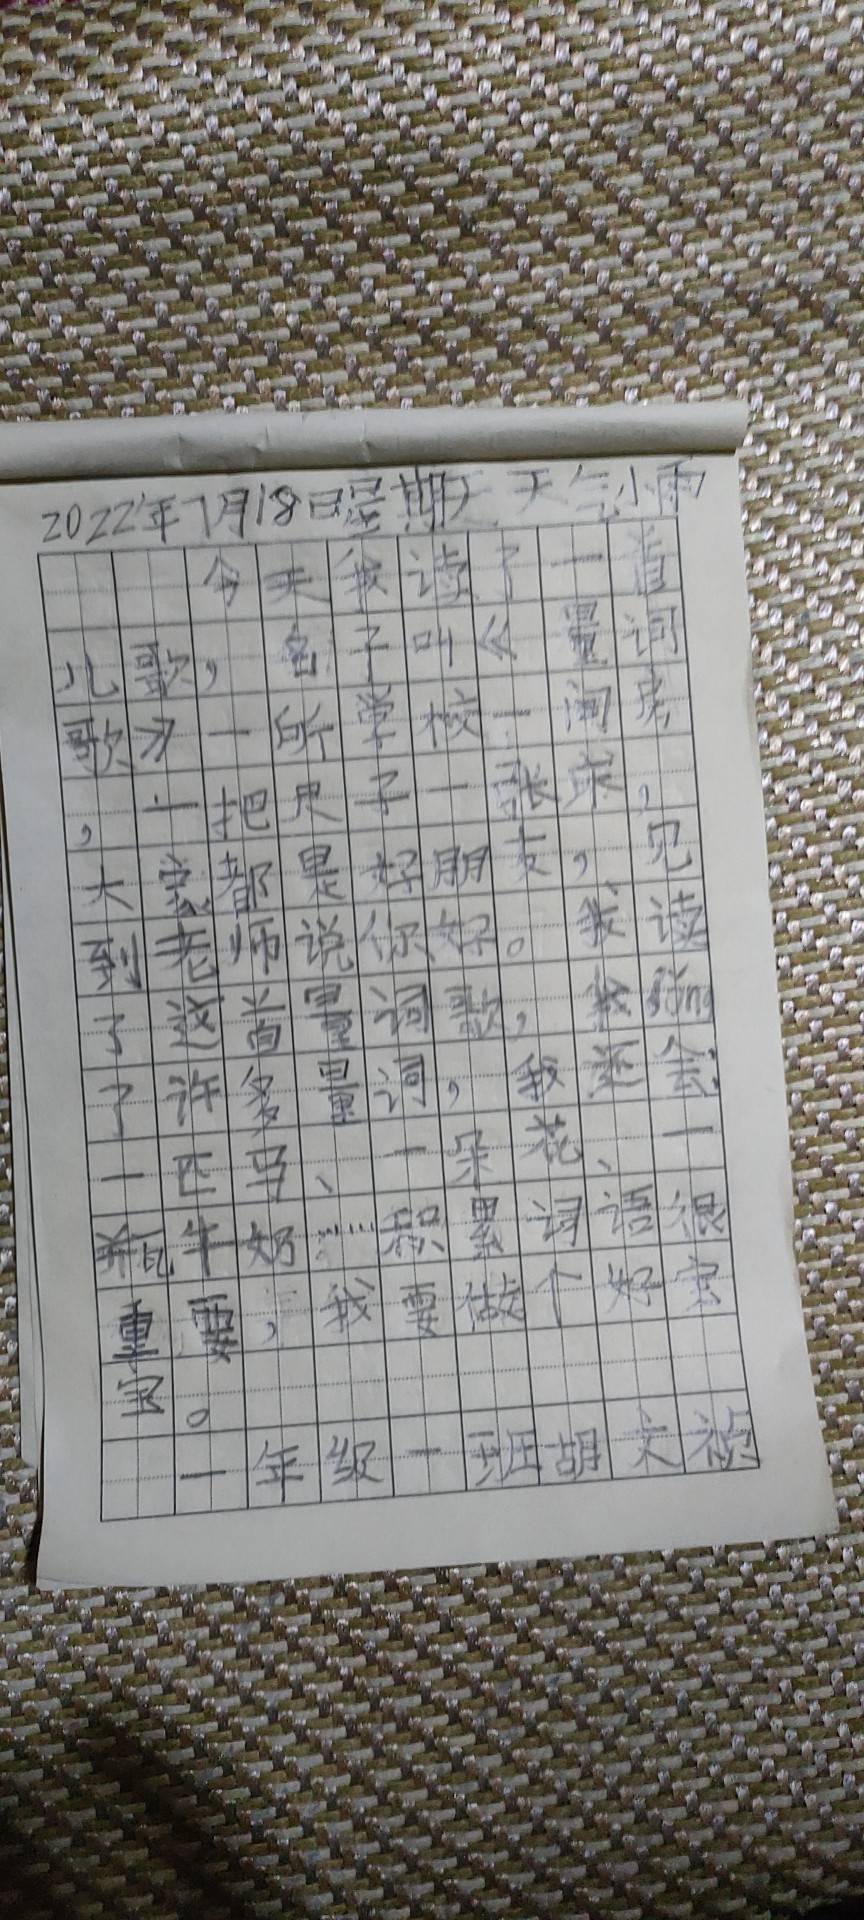 2022年7月18日星期天 天气小雨
今天我读了一首
儿歌，名子叫《量词
歌》一所学校一间房
，一把尺子一张床，
大家都是好朋友，见
到老师说你好。我读
了这首量词歌，我
了许多量词，我还会
一匹马、一朵花、一
瓶牛奶……积累词语很
重要，我要做个好宝
宝。
一年级一班胡文